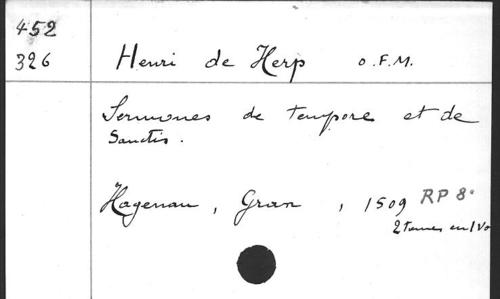 452
326
Henri de Herp O.F.M.
Sermones de tempore et de
Sanctis.
Hagenau, Gran, 1509 RP 8°
2 tomes en 1 Vo